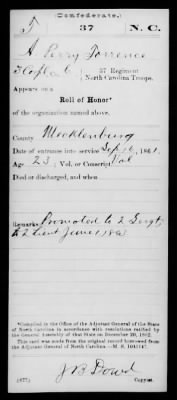 (Confederate.)
T 37 N. C.
A Perry Torrence
37 Regiment
North Carolina Troops.
Appears on a
Roll of Honor*
of the organization named above.
County Mecklenburg
Date of entrance into service Sept 16, 1861.
Age 23; Vol. or Conscript Vol
Died or discharged, and when
Remarks Promoted to 2 Sergt
& 2 Lieut June 1863
*Compiled in the Office of the Adjutant General of the State
of North Carolina in accordance with resolutions ratified by
the General Assembly of that State on December 20, 1862.
This card was made from the original record borrowed from
the Adjutant General of North Carolina—M. S.
(677) J B Dowd
Copyist.